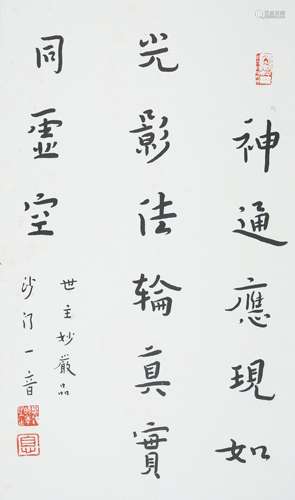 神通應現如
光影法輪真實
同虛空
世主妙嚴品
沙門一音